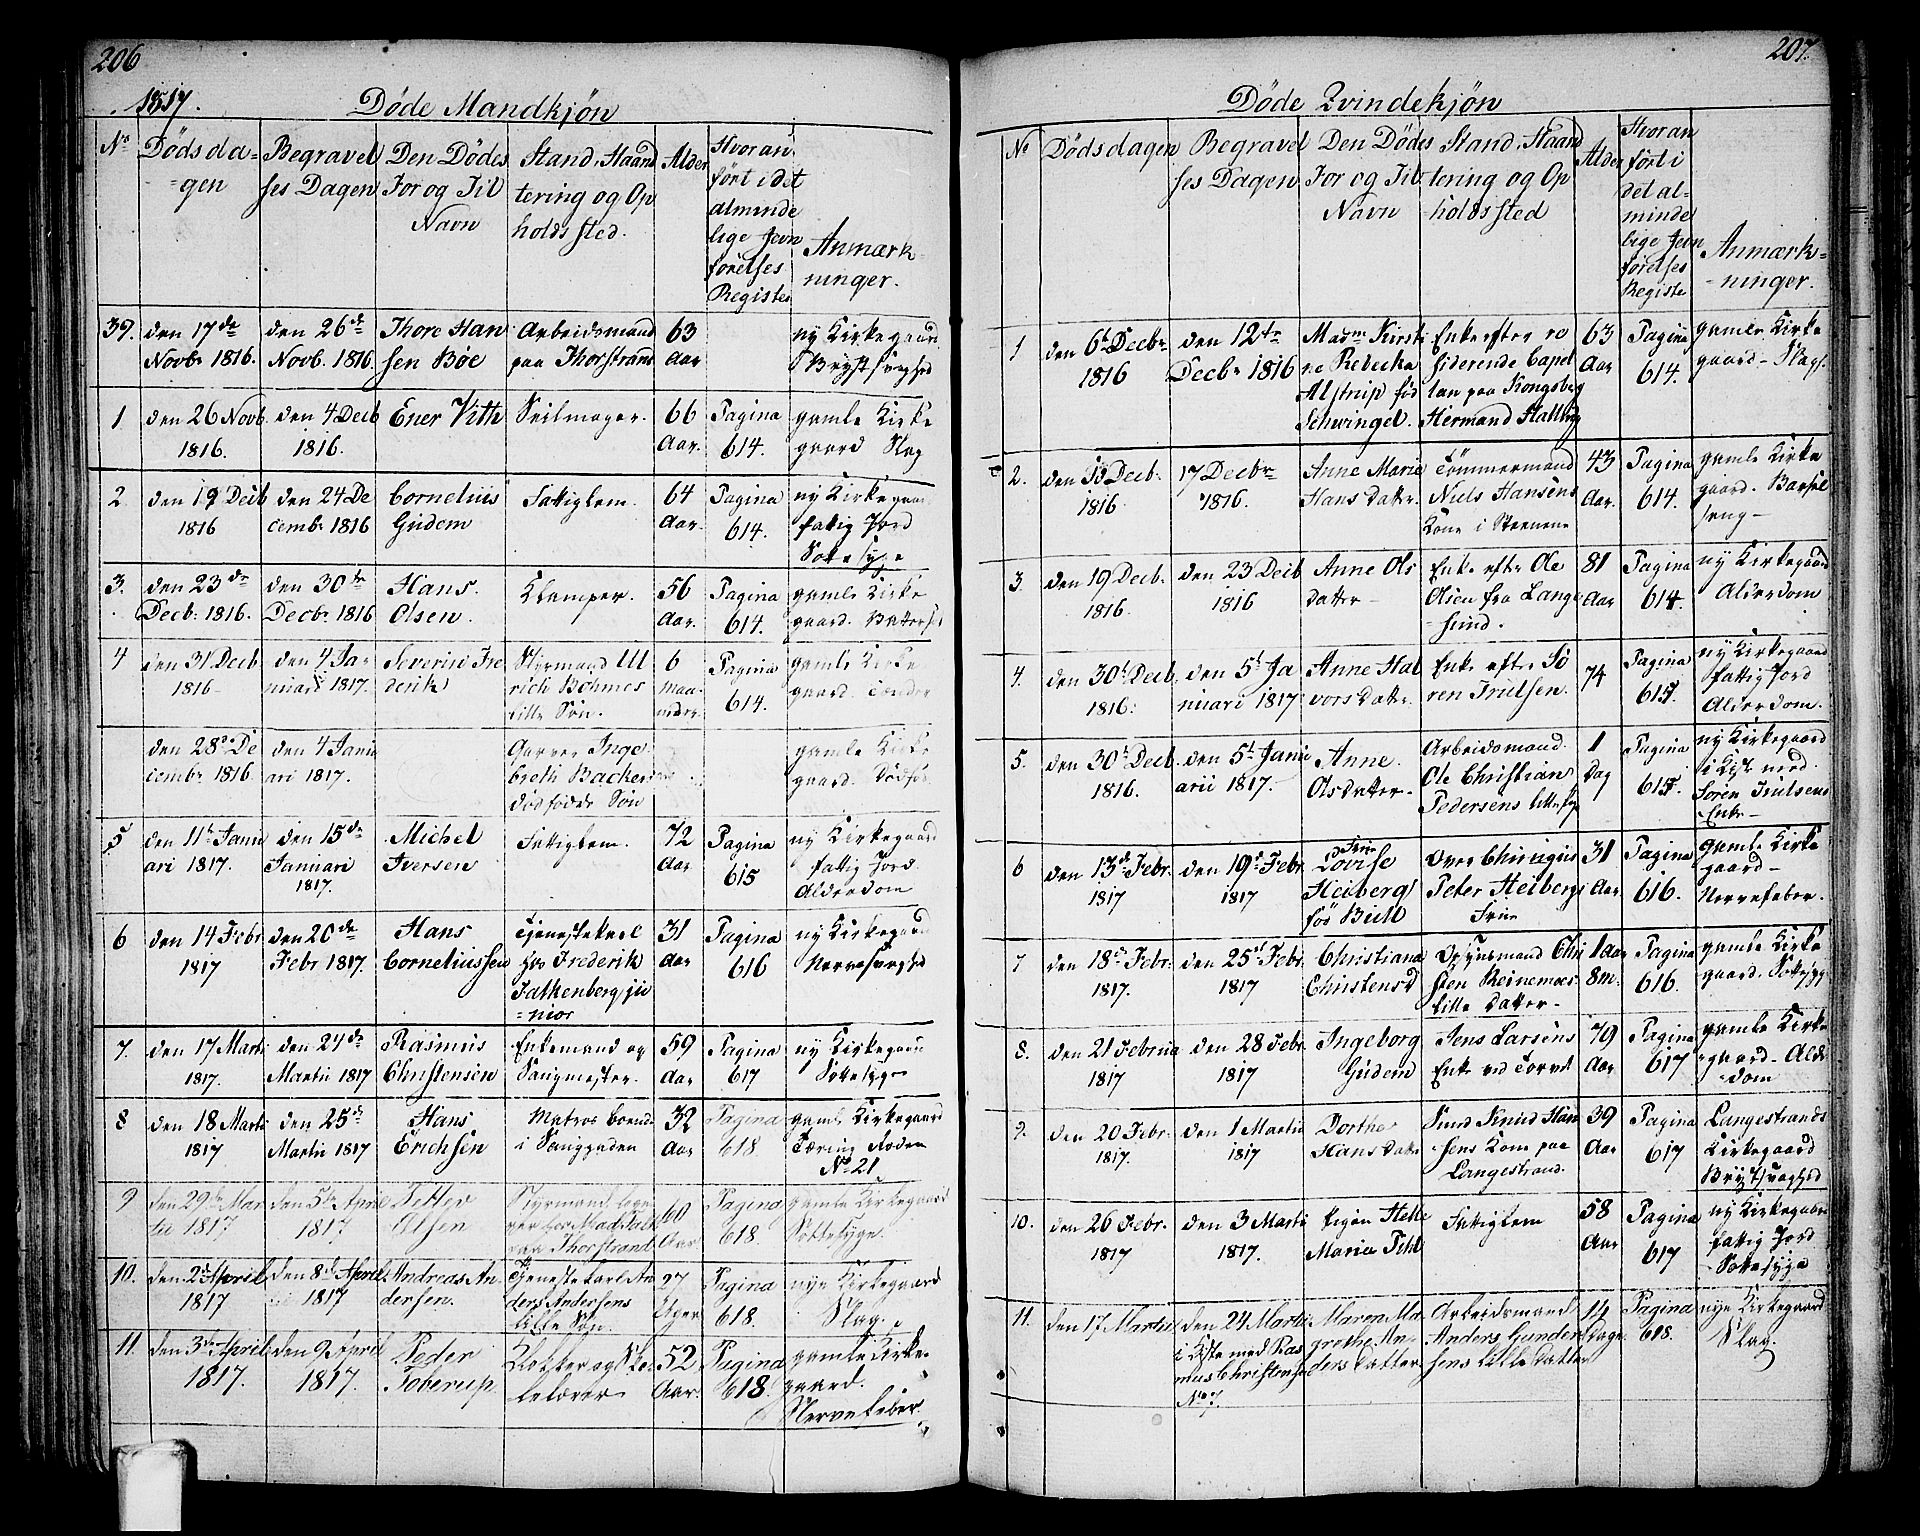 206
1817.
Døde Mandkjøn
No
Dødsda-
=gen
Begravel
ses Dagen
Den Dødes
For og Til
Navn
Stand, Haand
tering og Op
holdssted.
Alder
Hvor an
ført i det
alminde
lige Jevn
førelses
Register
Anmærk-
ninger.
39. den 17de
Novbr 1816.
den 26de
Novb. 1816.
Thore Han
sen Böe
Arbeidsmand
paa Thorstrand
63
Aar
ny Kirkegaard
Brystsvaghed
1
den 26 Novb.
1816.
den 4 Decb
1816.
Ener Vith
Seilmager.
66
Aar.
Pagina
614.
gamle Kirke
gaard Slag
2
den 19 Decb
1816
den 24 De
cembr 1816
Cornelius
Gudem
Fattiglem.
64
Aar.
Pagina
614.
ny Kirkegaard
fattig Jord
Sottesyge
3.
den 23de
Decbr: 1816.
den 30te
Decbr. 1816
Hans.
Olsen.
Klamper.
56
Aar.
Pagina
614.
gamle Kirke
gaard.
4
den 31 Decb
1816-
den 4 Ja-
nuari 1817.
Severin Fre
derik
Styrmand Ul
rich Böhmes
lille Søn.
6
maa-
neder
Pagina
614.
gamle Kirke
gaard. Tænder
den 28de De
cembr 1816.
den 4 Janu
ari 1817.
Garver Inge
breth Backer
dødfødde Søn
gamle Kirke
gaard. Dødfød
5
den 11te Janu
ari 1817.
den 15de
Januari
1817.
Michel
Iversen
Fattiglem.
72
Aar
Pagina
615
ny Kirkegaard
fattig Jord.
Alderdom
6
den 14 Febr
1817
den 20de
Febr 1817.
Hans
Corneliussen
Tjenestekarl
hos Frederik
Falkenberg, ju
=nior
31
Aar
Pagina
616
ny Kirkegaard
Nervesvaghed
7.
den 17 Marti
1817.
den 24de
Martii 1817
Rasmus
Christensen
Enkemand og
Sangmester.
59
Aar
Pagina
617
ny Kirkegaard
Sottesyge
8
den 18 Marti
1817
den 25de
Martii 1817
Hans
Erichsen
Matros boende
i Langgaden
32
Aar
Pagina
618.
gamle Kirkegaard
Tæring Roden
No 21
9
den 29de Mar
tii 1817
den 5te April
1817
Petter
Olsen
Styrmand
paa Thorstrand
60
Aar
Pagina
618.
gamle Kirkegaard
Sottesyge.
10.
den 2de April
1817
den 8de April
1817
Andreas An
dersen.
Tjenestekarl An
ders Andersens
lille Søn.
27
Uger
Pagina
618.
nye Kirkegaard
Slag.
11.
den 3die April
1817.
den 9 April
1817.
Peder
Toberup.
Klokker og Sko
lelærer
52
Aar.
Pagina
618.
gamle Kirke-
gaard.
Nervefeber.
207.
Døde Qvindekjøn
No
Dødsdagen
Begravel
ses Dagen
Den Dødes
For og Til
Navn
Stand, Haand
tering og Op
holdssted
Alder
Hvor an
ført i
det al-
minde
lige Jevn
førelses
Registe
Anmærk=
-ninger.
1
den 6te Decbr
1816
den 12te
Decbr 1816
Madm Kirsti
ne Rebecka
Alstrup fød
Schwingel.
Enke efter re
siderende Capel
lan paa Kongsberg
Hermand
63
Aar
Pagina
614.
gamle Kirke
gaard- Slag.
2.
den 13 Decb.
1816
17 Decbr
1816.
Anne Marie
Hans Datter.
Tømmermand
Niels Hansens
Kone i Steenene
43
Aar.
Pagina
614.
gamle Kirke
gaard. Barsel
seng-
3.
den 19 Decb.
1816.
den 23 Decb
1816
Anne Ols
datter-
Enke efter Ole
Olsen fra Lange
-sund.
81
Aar
Pagina
614.
ny Kirkegaard
Alderdom
4.
den 30te Decb.
1816:
den 5te Ja
nuari 1817
Anne Hal
vors Datter.
Enke efter Sö
ren Trulsen.
74
Pagina
615.
ny Kirkegaard
fattig Jord
Alderdom.
5.
den 30te Decb.
1816.
den 5te Janu
arii 1817.
Anne.
Olsdatter.
Arbeidsmand.
Ole Christian
Pedersens lille
1
Dag
Pagina
615.
ny Kirkegaard
i Kiste med.
Sören Trulsens
Enke-
6
den 13de Febr.
1817
den 19de Febr
1817
Frue
Lovise
Heiberg
fød Bull
Over Chirurgus
Peter Heibergs
Frue
31
Aar.
Pagina
616.
gamle Kirke
gaard-
Nervefeber.
7
den 18de Febr.
1817.
den 25de Febr.
1817
Christiana
Christensd
Opsynsmand Chri
sten Reinemoes
lille Datter-
1 Aar
8m.
Pagina
616.
gamle Kirke
gaard. Sottesyge
8.
den 21 Februa
1817
den 28 Febr.
1817
Ingeborg
Gudem
Jens Larsens
Enke ved Torvet
79
Aar
Pagina
617
gamle Kirke
=gaard- Alder
=dom
9.
den 20 Febr.
1817.
den 1 Martii
1817
Dorthe
Hans Datter
Knud Han
sens Kone paa
Langestrand.
39
Aar
Pagina
617
Langestrands
Kirkegaard
Brystsvaghed
10.
den 26 Febr.
1817
den 3 Marti
1817.
Pigen Helle
Maria Pihl
Fattiglem
58
Aar
Pagina
617
ny Kirkegaard
fattig Jord
-Sottesyge
11.
den 17 Martii
den 24 Martii
i Kiste med Ras
mus Christensen
No 7.
Maren Mar
grethe An-
ders Datter
Arbeidsmand
Anders Gunder
sens lille Datter
14
Dage.
Pagina
618.
nye Kirkegaard
Slag.